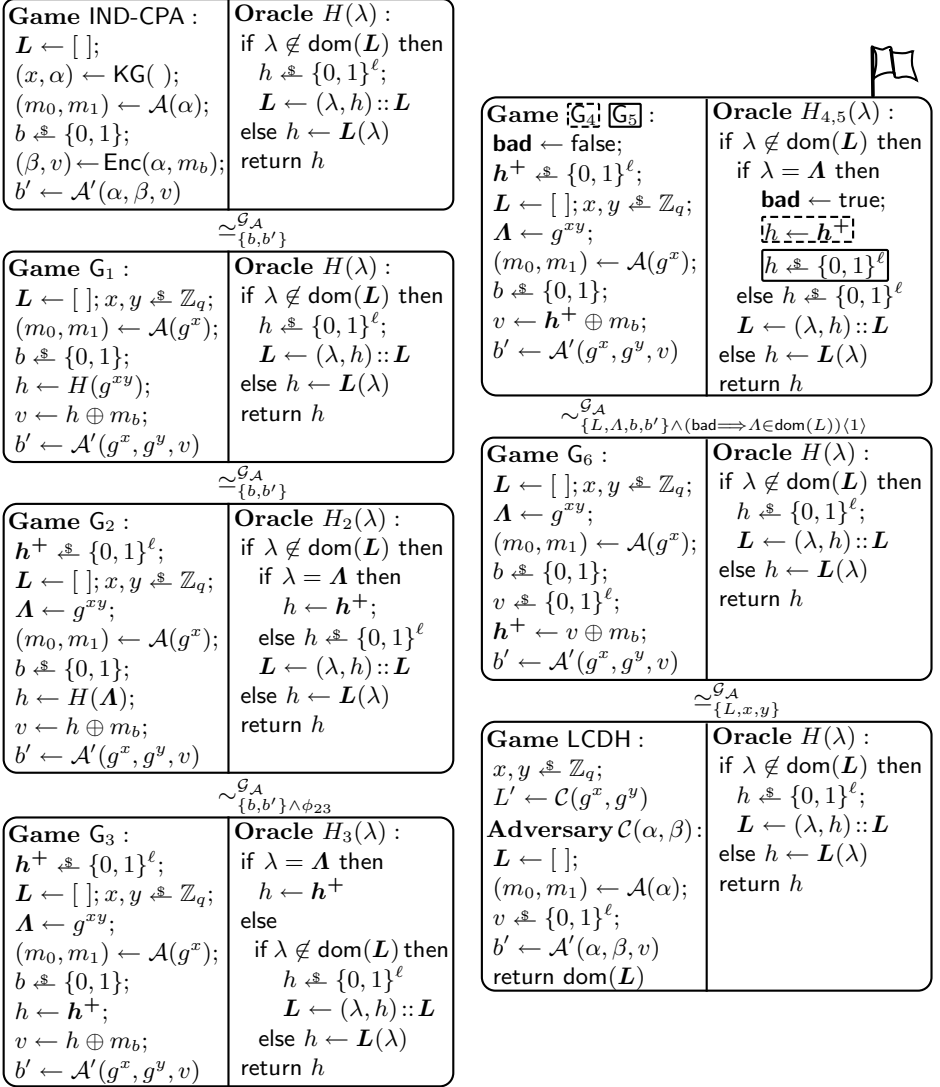 Game IND-CPA :
L ← [ ];
(x, α) ← KG( );
(m₀, m₁) ← 𝒜(α);
b ↞$ {0, 1};
(β, v) ← Enc(α, m_b);
b′ ← 𝒜′(α, β, v)
Oracle H(λ) :
if λ ∉ dom(L) then
h ↞$ {0, 1}^ℓ;
L ← (λ, h) :: L
else h ← L(λ)
return h
≃^{𝒢_𝒜}_{{b,b′}}
Game G₁ :
L ← [ ]; x, y ↞$ ℤ_q;
(m₀, m₁) ← 𝒜(g^x);
b ↞$ {0, 1};
h ← H(g^{xy});
v ← h ⊕ m_b;
b′ ← 𝒜′(g^x, g^y, v)
Oracle H(λ) :
if λ ∉ dom(L) then
h ↞$ {0, 1}^ℓ;
L ← (λ, h) :: L
else h ← L(λ)
return h
≃^{𝒢_𝒜}_{{b,b′}}
Game G₂ :
h⁺ ↞$ {0, 1}^ℓ;
L ← [ ]; x, y ↞$ ℤ_q;
Λ ← g^{xy};
(m₀, m₁) ← 𝒜(g^x);
b ↞$ {0, 1};
h ← H(Λ);
v ← h ⊕ m_b;
b′ ← 𝒜′(g^x, g^y, v)
Oracle H₂(λ) :
if λ ∉ dom(L) then
if λ = Λ then
h ← h⁺;
else h ↞$ {0, 1}^ℓ
L ← (λ, h) :: L
else h ← L(λ)
return h
∼^{𝒢_𝒜}_{{b,b′}∧φ₂₃}
Game G₃ :
h⁺ ↞$ {0, 1}^ℓ;
L ← [ ]; x, y ↞$ ℤ_q;
Λ ← g^{xy};
(m₀, m₁) ← 𝒜(g^x);
b ↞$ {0, 1};
h ← h⁺;
v ← h ⊕ m_b;
b′ ← 𝒜′(g^x, g^y, v)
Oracle H₃(λ) :
if λ = Λ then
h ← h⁺
else
if λ ∉ dom(L) then
h ↞$ {0, 1}^ℓ
L ← (λ, h) :: L
else h ← L(λ)
return h
Game G₄ G₅ :
bad ← false;
h⁺ ↞$ {0, 1}^ℓ;
L ← [ ]; x, y ↞$ ℤ_q;
Λ ← g^{xy};
(m₀, m₁) ← 𝒜(g^x);
b ↞$ {0, 1};
v ← h⁺ ⊕ m_b;
b′ ← 𝒜′(g^x, g^y, v)
Oracle H₄,₅(λ) :
if λ ∉ dom(L) then
if λ = Λ then
bad ← true;
h ← h⁺
h ↞$ {0, 1}^ℓ
else h ↞$ {0, 1}^ℓ
L ← (λ, h) :: L
else h ← L(λ)
return h
∼^{𝒢_𝒜}_{{L,Λ,b,b′}∧(bad⟹Λ∈dom(L))⟨1⟩}
Game G₆ :
L ← [ ]; x, y ↞$ ℤ_q;
Λ ← g^{xy};
(m₀, m₁) ← 𝒜(g^x);
b ↞$ {0, 1};
v ↞$ {0, 1}^ℓ;
h⁺ ← v ⊕ m_b;
b′ ← 𝒜′(g^x, g^y, v)
Oracle H(λ) :
if λ ∉ dom(L) then
h ↞$ {0, 1}^ℓ;
L ← (λ, h) :: L
else h ← L(λ)
return h
≃^{𝒢_𝒜}_{{L,x,y}}
Game LCDH :
x, y ↞$ ℤ_q;
L′ ← 𝒞(g^x, g^y)
Adversary 𝒞(α, β) :
L ← [ ];
(m₀, m₁) ← 𝒜(α);
v ↞$ {0, 1}^ℓ;
b′ ← 𝒜′(α, β, v)
return dom(L)
Oracle H(λ) :
if λ ∉ dom(L) then
h ↞$ {0, 1}^ℓ;
L ← (λ, h) :: L
else h ← L(λ)
return h